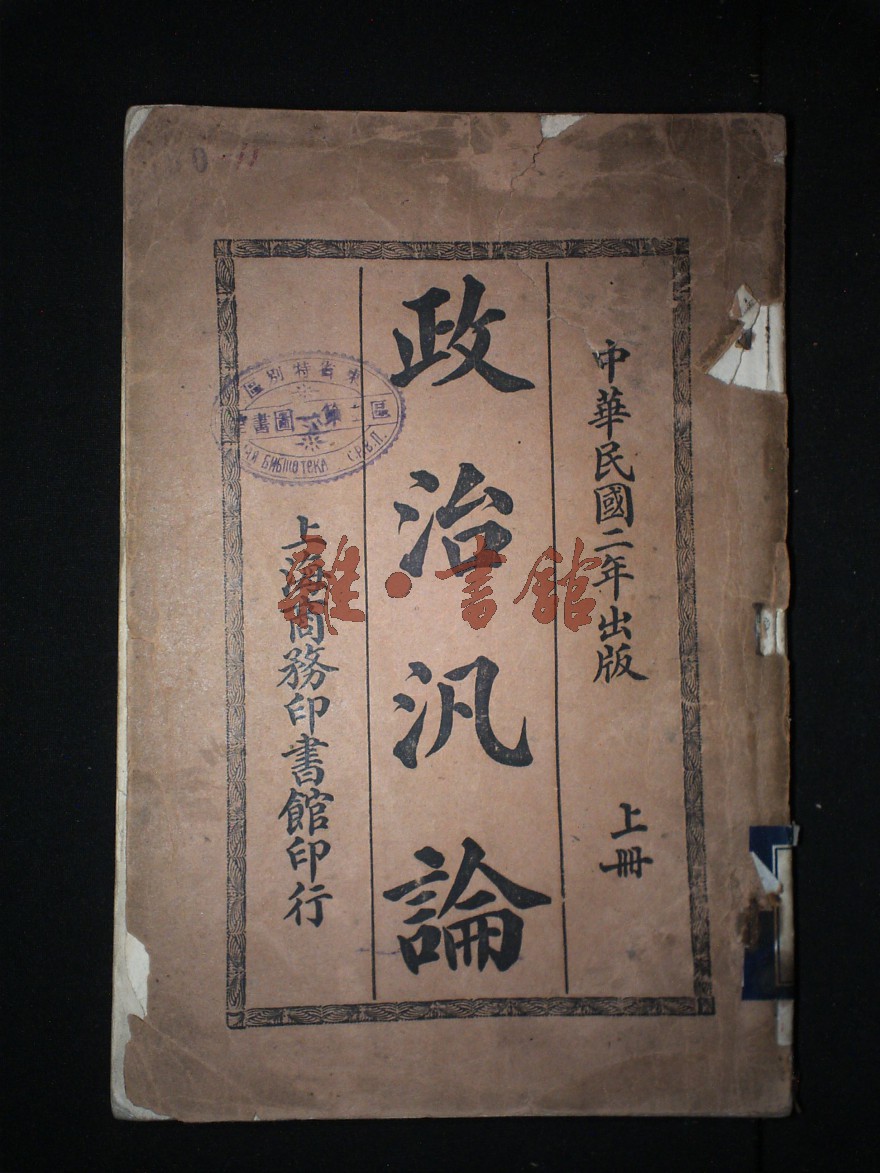 中華民國二年出版 上冊
政治汎論
上海商務印書館印行
東省特別區
區立第一圖書館
БИБЛІОТЕКА С.Р.В.П.
雜·書館